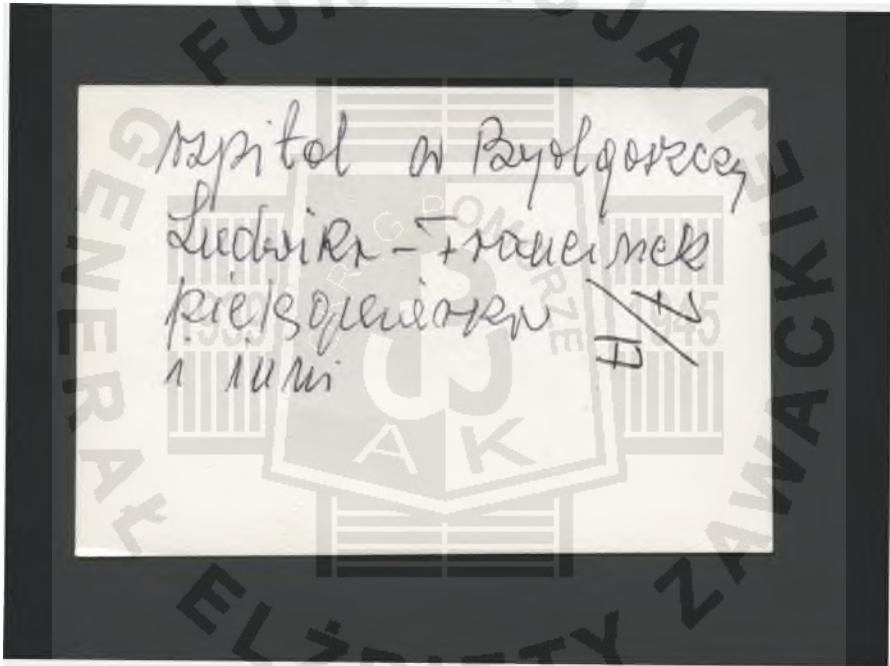 szpital w Bydgoszczy
Ludwika - Franciszek
pielęgniarka
i inni
FUNDACJA
GENERAŁ
ELŻBIETY ZAWACKIEJ
POMORZE
1939
1945
AK